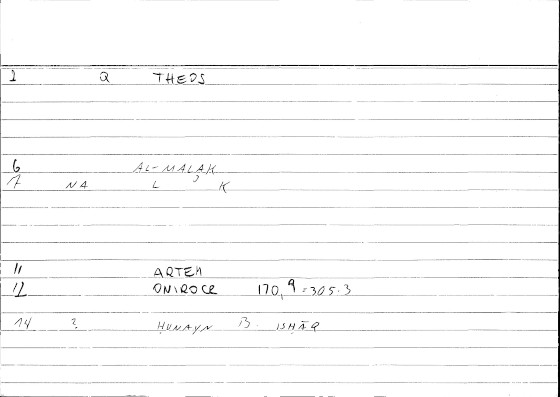 1 Q THEOS
6 AL-MALAK
7 NA L ʾ K
11 ARTEM
12 ONIROCR 170,9=305.3
14 2 ḤUNAYN B. ISḤĀQ